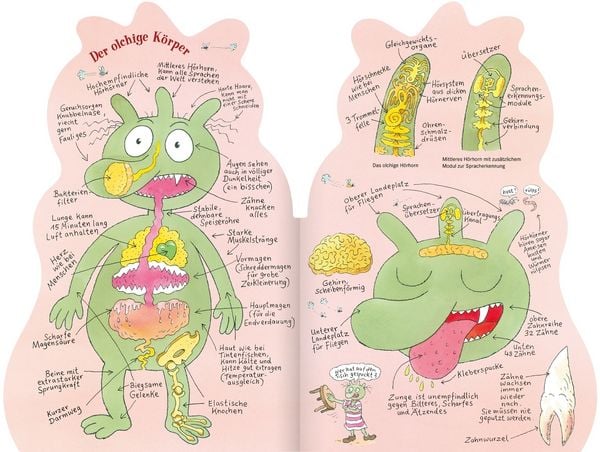 Der olchige Körper
Hochempfindliche
Hörhörner
Mittleres Hörhorn,
kann alle Sprachen
der Welt verstehen
Harte Haare,
kann man
nicht mit
einer Schere
schneiden
Geruchsorgan
Knubbelnase,
riecht
gern
Fauliges
Augen sehen
auch in völliger
Dunkelheit
(ein bisschen)
Bakterien-
filter
Zähne
knacken
alles
Lunge kann
15 Minuten lang
Luft anhalten
Stabile,
dehnbare
Speiseröhre
Starke
Muskelstränge
Herz
wie bei
Menschen
Vormagen
(Schreddermagen
für grobe
Zerkleinerung)
Hauptmagen
(für die
Endverdauung)
Scharfe
Magensäure
Haut wie bei
Tintenfischen,
kann Kälte und
Hitze gut ertragen
(Temperatur-
ausgleich)
Beine mit
extrastarker
Sprungkraft
Biegsame
Gelenke
Kurzer
Darmweg
Elastische
Knochen
Gleichgewichts-
organe
Hörschnecke
wie bei
Menschen
Hörsystem
aus dicken
Hörnerven
3 Trommel-
felle
Ohren-
schmalz-
drüsen
Das olchige Hörhorn
Übersetzer
Sprachen-
erkennungs-
module
Gehirn-
verbindung
Mittleres Hörhorn mit zusätzlichem
Modul zur Spracherkennung
Oberer Landeplatz
für Fliegen
Sprachen-
übersetzer
Übertragungs-
kanal
hust
rülps!
Hörhörner
hören sogar
Ameisen
husten
und
Würmer
rülpsen
Gehirn,
scheibenförmig
Unterer
Landeplatz
für Fliegen
obere
Zahnreihe
32 Zähne
Unten
48 Zähne
Klebespucke
Wer hat auf den
Stuhl gespuckt?
Zunge ist unempfindlich
gegen Bitteres, Scharfes
und Ätzendes
Zähne
wachsen
immer
wieder
nach.
Sie müssen nie
geputzt werden
Zahnwurzel